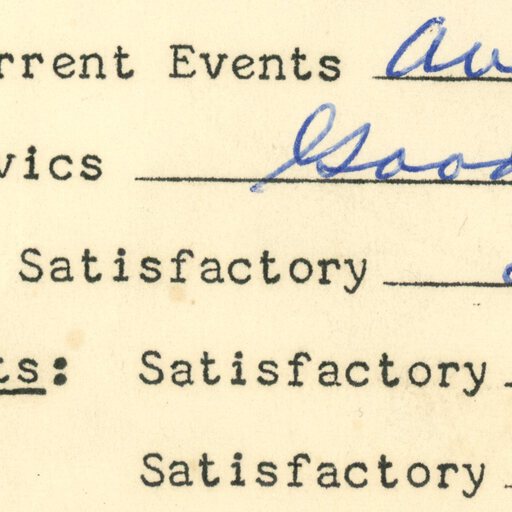 rrent Events av
vics Good
Satisfactory
ts: Satisfactory
Satisfactory